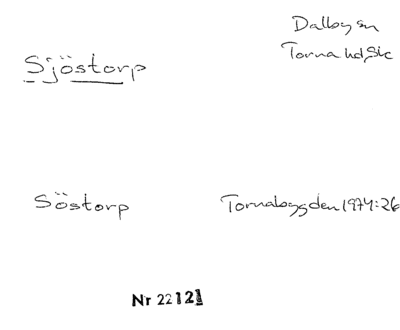 Dalby sn
Sjöstorp
Torna hd, Sk
Söstorp
Tornabygden 1974:26
Nr 22121